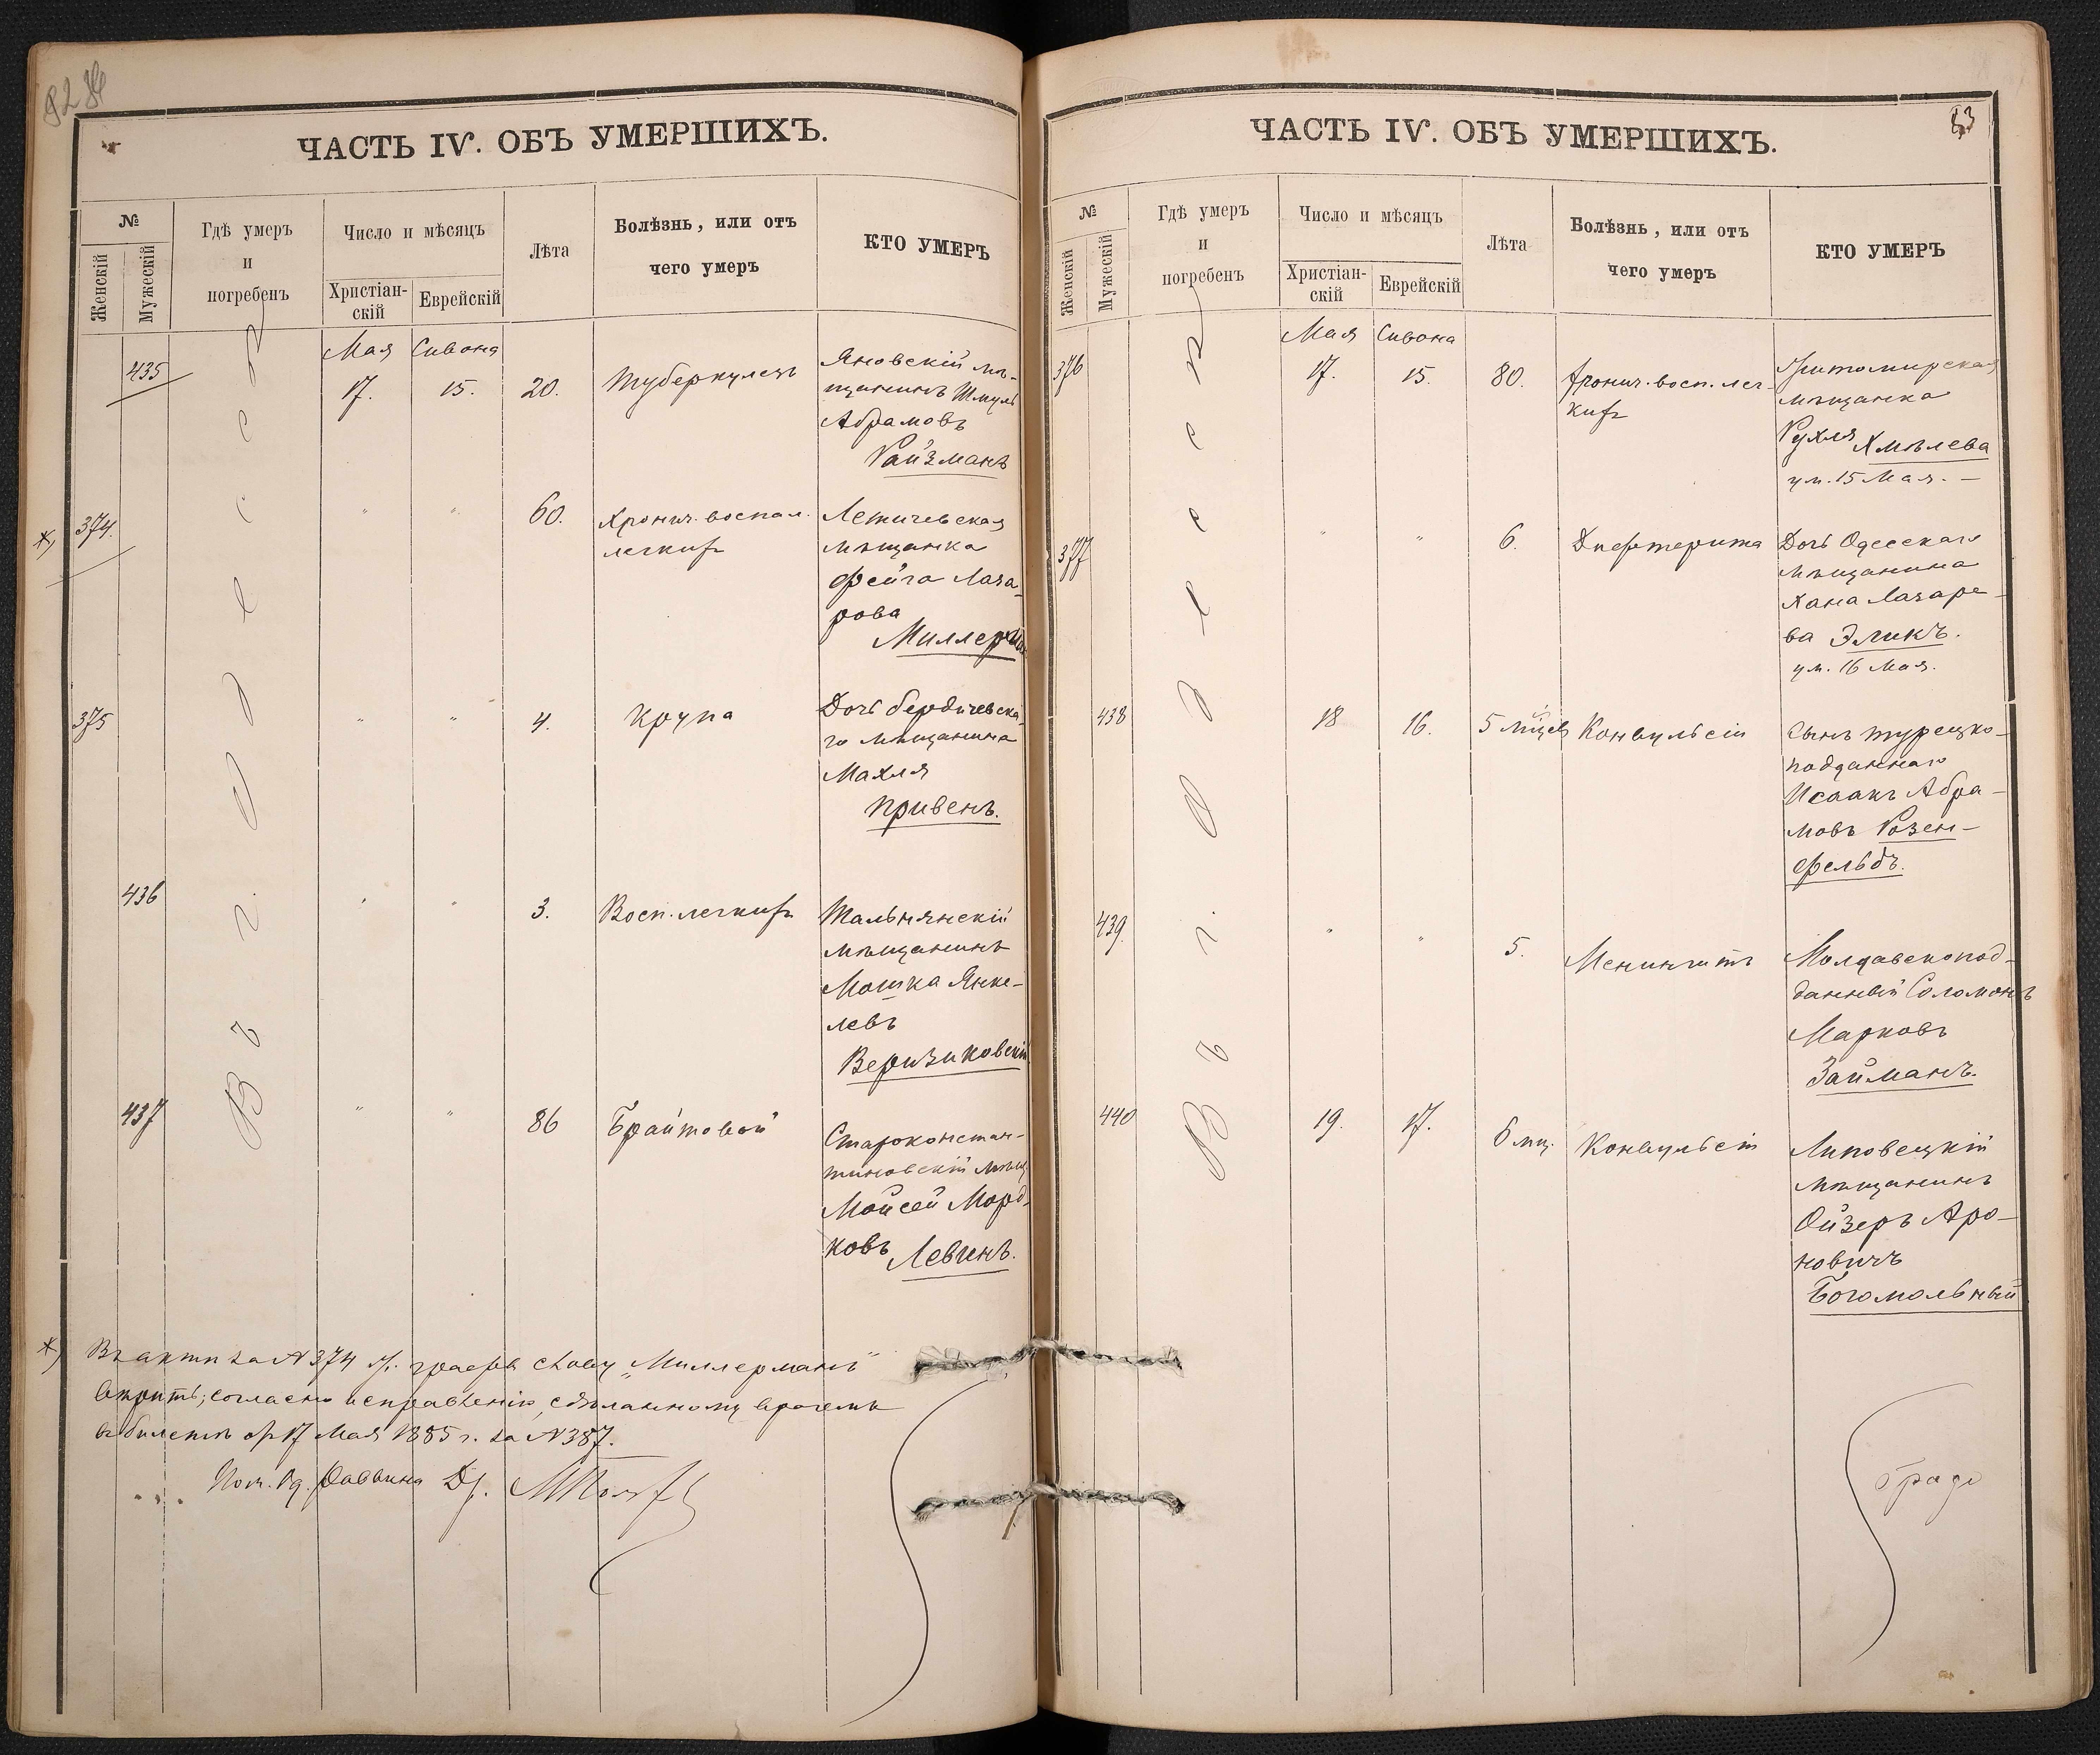 ЧАСТЬ IV. ОБЪ УМЕРШИХЪ.
№
Женскій
Мужескій
Гдѣ умеръ
и
погребенъ
Число и мѣсяцъ
Христіан-
скій
Еврейскій
Лѣта
Болѣзнь, или отъ
чего умеръ
КТО УМЕРЪ
Въ г. Одессѣ
Мая Сивона
435
17. 15. 20. Туберкулезъ
Яновскій мѣ-
щанинъ Шмуль
Абрамовъ
Райзманъ
*) 374. " " 60. Хронич. воспал.
легкихъ
Летичевская
мѣщанка
Фейга Лаза-
рова
Миллерманъ
375 " " 4. Крупа
Дочь бердичевска-
го мѣщанина
Махля
Привенъ.
436 " " 3. Восп. легкихъ
Тальнянскій
мѣщанинъ
Мошка Янке-
левъ
Веризиковскій
437 " " 86
Старокон­стан-
тиновскій мѣщ
Мойсей Морд-
ковъ Левинъ.
*) Въ актѣ за № 374 въ графѣ слову „Миллерманъ"
вѣрить; согласно исправленію, сдѣланному врачемъ
въ билетѣ отъ 17 Мая 1885 г. за № 387.
Пом. Од. Раввина Др.
ЧАСТЬ IV. ОБЪ УМЕРШИХЪ.
83
№
Женскій
Мужескій
Гдѣ умеръ
и
погребенъ
Число и мѣсяцъ
Христіан-
скій
Еврейскій
Лѣта
Болѣзнь, или отъ
чего умеръ
КТО УМЕРЪ
Въ г. Одессѣ
Мая Сивона
376 17. 15. 80. Хронич. восп. лег-
кихъ
Житомирская
мѣщанка
Рухля Хмѣлева
ум. 15 Мая. –
377 " " 6. Дифтерита
Дочь Одесскаго
мѣщанина
Хана Лазаре-
ва Эликъ.
ум. 16 Мая.
438 18 16. 5 мѣцев Конвульсіи
Сынъ турецко-
подданнаго
Исаакъ Абра-
мовъ Розен-
фельдъ.
439. " " 5. Менингитъ
Молдавскопод-
данный Соломонъ
Марковъ
Займанъ.
440 19. 17. 6 мц. Конвульсіи
Липовецкій
мѣщанинъ
Ойзеръ Аро-
новичъ
Богомольный